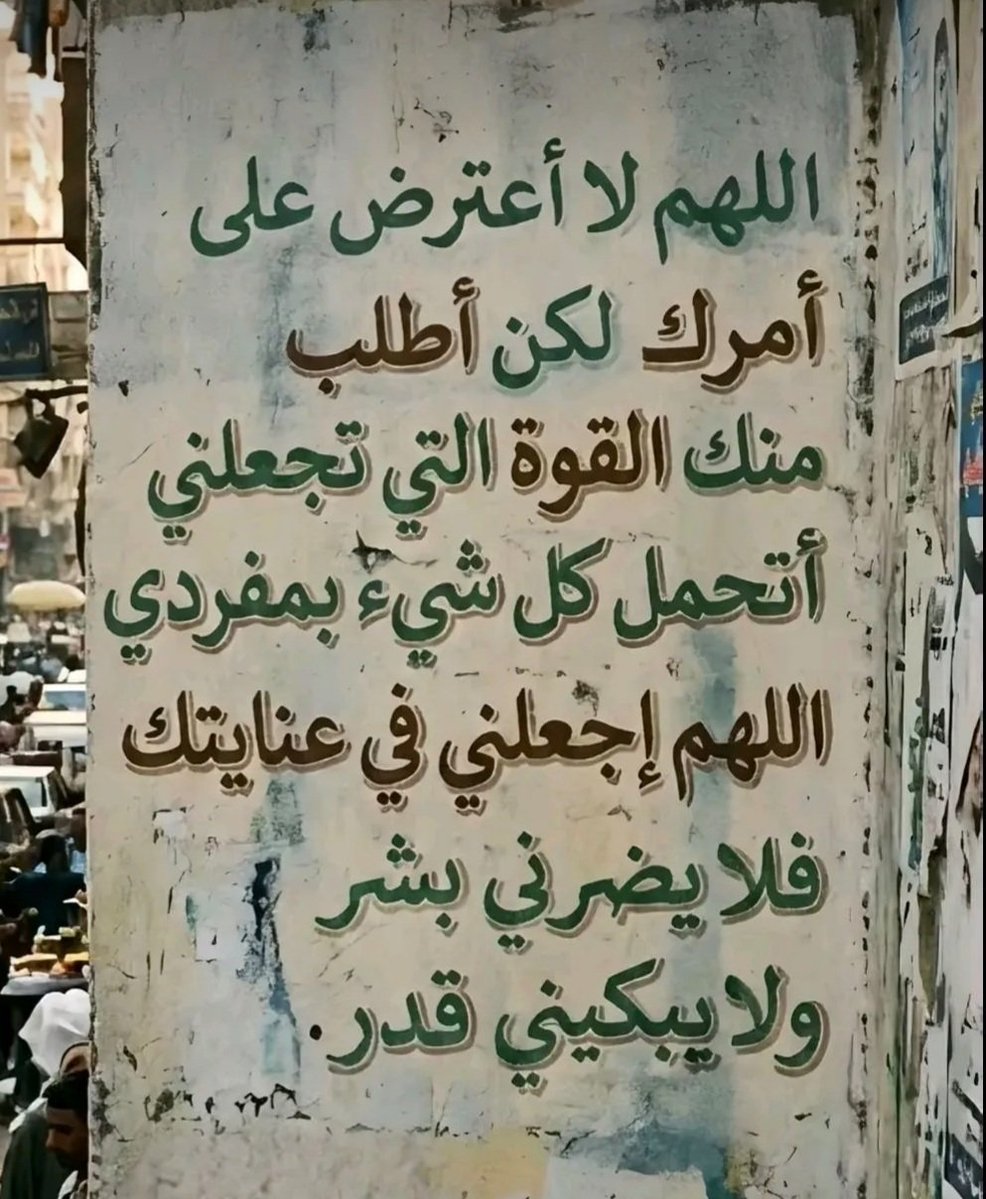 اللهم لا أعترض على
أمرك لكن أطلب
منك القوة التي تجعلني
أتحمل كل شيء بمفردي
اللهم إجعلني في عنايتك
فلا يضرني بشر
ولا يبكيني قدر.